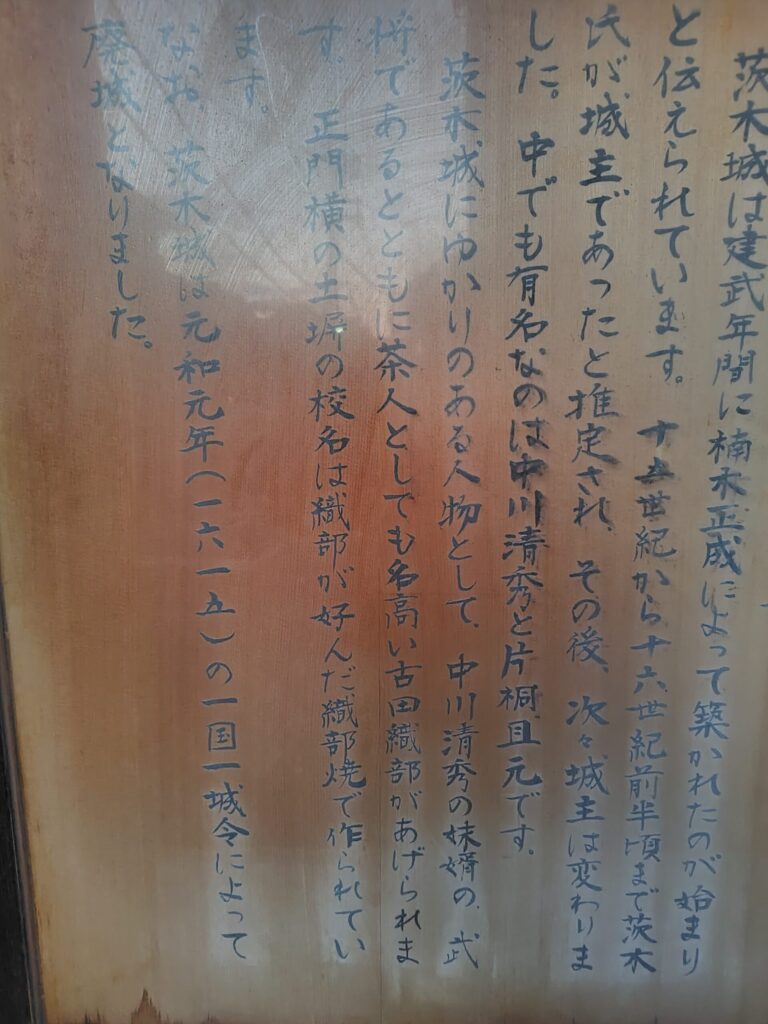 茨木城は建武年間に楠木正成によって築かれたのが始まり
と伝えられています。十五世紀から十六世紀前半頃まで茨木
氏が城主であったと推定され、その後、次々城主は変わりま
した。中でも有名なのは中川清秀と片桐且元です。
茨木城にゆかりのある人物として、中川清秀の妹婿の、武
将であるとともに茶人としても名高い古田織部があげられま
す。正門横の土塀の校名は織部が好んだ織部焼で作られてい
ます。
なお、茨木城は元和元年(一六一五)の一国一城令によって
廃城となりました。